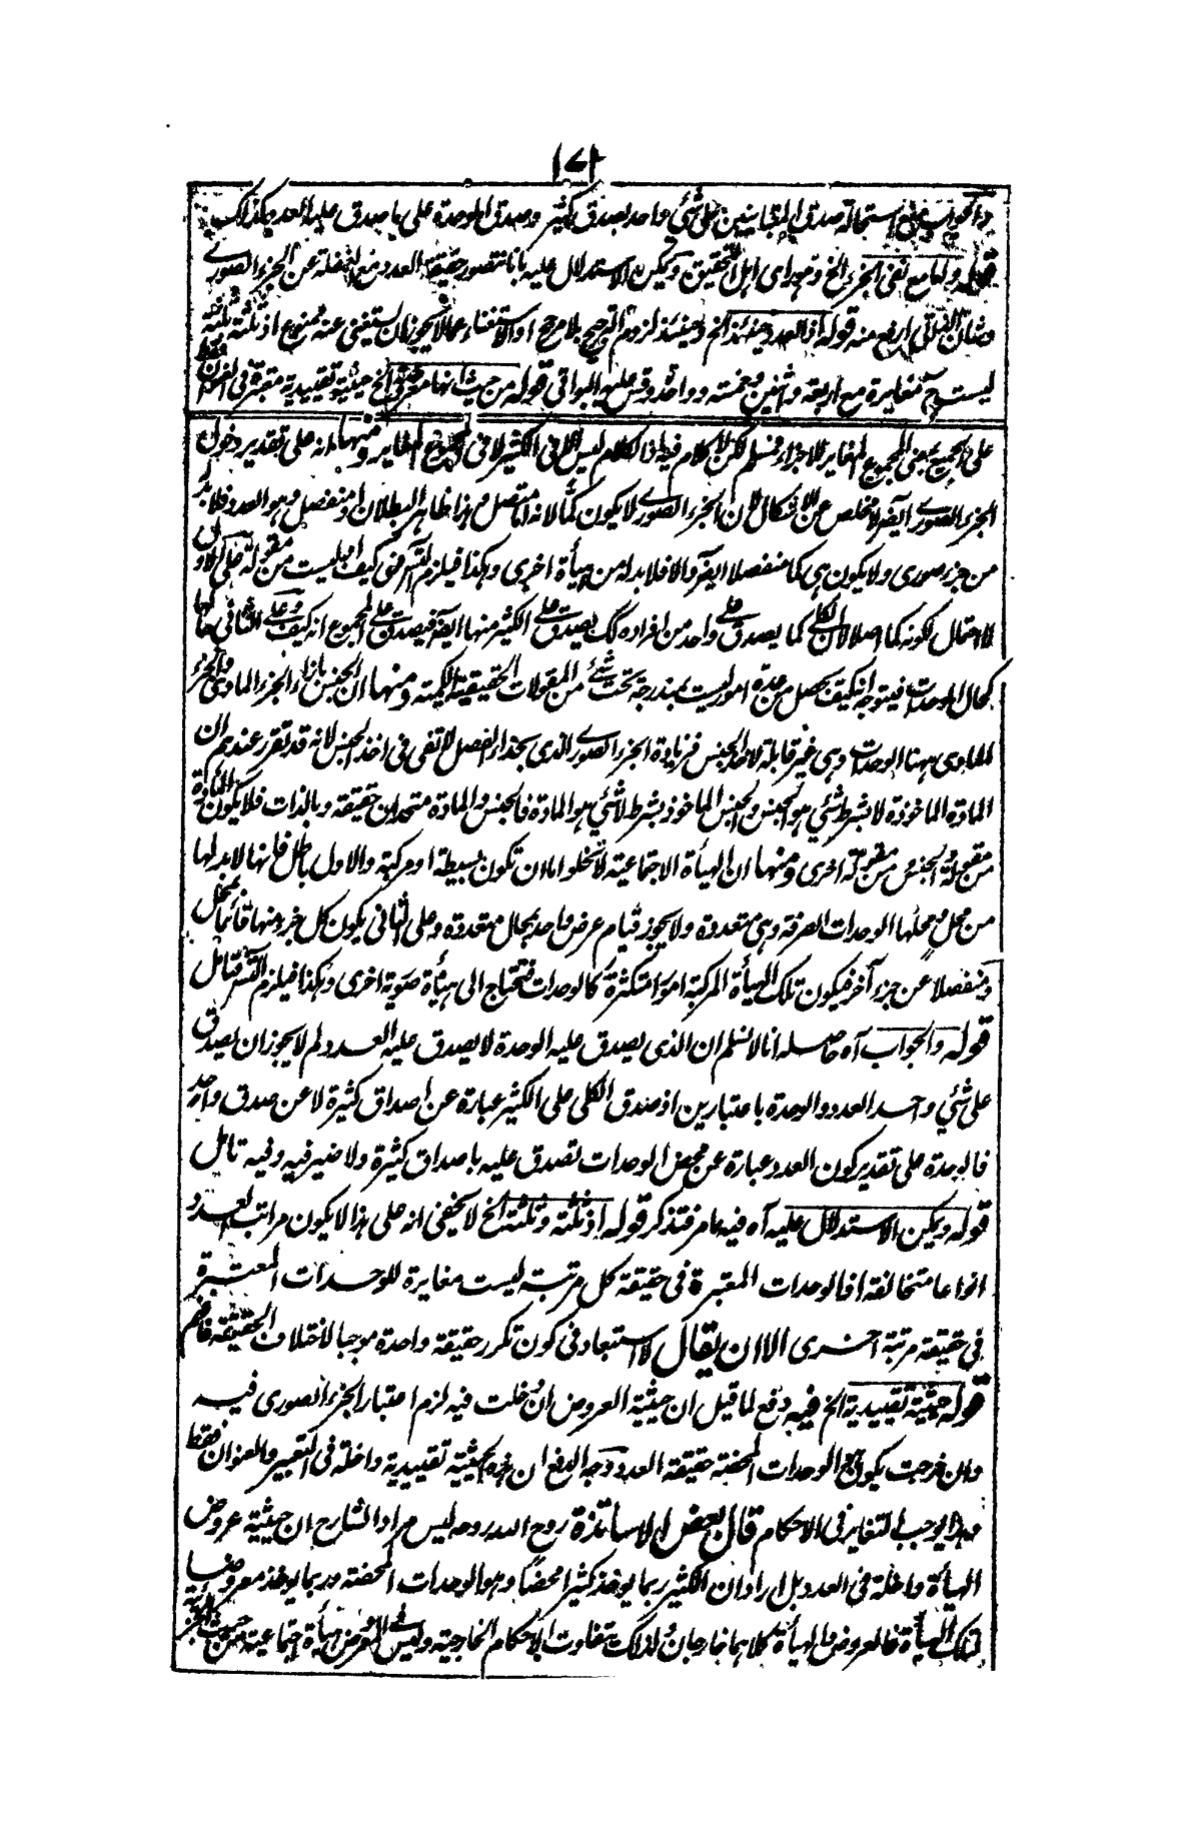 ١٧٢
والجواب منع استحالة صدق المتباينين على شئ واحد بصدق كثير وصدق الوحدة على ما صدق عليه العدد كذلك
قوله واما مع نفى الجزء الخ وهو راى اهل التحقيق ويمكن الاستدلال عليه بانا نتصور حقيقة العدد مع الغفلة عن الجزء الصورى
قوله اذ العدد حينئذ الخ وحينئذ لزوم الترجيح بلا مرجح او الاستغناء عما لا يجوز ان يستغنى عنه ممنوع اذ ثلثة ثلثة
ليست ح مغايرة مع اربعة واثنين وخمسة وواحد وقس عليه البواقى قوله من حيث انها معروضة الخ حيثية تقييدية معتبرة فى العنوان فقط
على الجميع بمعنى المجموع المغاير للاجزاء فمسلم لكن لا كلام فيه اذ الكلام ليس الا فى الكثير لا فى المجموع المغاير ومنها انه على تقدير دخول
الجزء الصورى ايضا لا مخلص عن الاشكال لان الجزء الصورى لا يكون كما لانه اما متصل وهذا ظاهر البطلان او منفصل وهو العدد فلا بد
من جزء صورى ولا يكون هى كما منفصلا ايضا والا فلا بد له من هيأة اخرى وهكذا فيلزم التسلسل كيف ليست من مقولة فعلى الاول
لا احتمال لكونه كما اصلا لان الكلى كما يصدق على واحد من افراده كك يصدق على الكثير منها ايضا فيصدق على المجموع انه كيف وعلى الثانى حالها
كحال الوحدات فيتوجه انه كيف يحصل من عدة امور ليست بمندرجة تحت شئ من المقولات الحقيقية الكمية ومنها ان الجنس بازاء الجزء المادى والجزء
المادى ههنا الوحدات وهى غير قابلة لاخذ الجنس فزيادة الجزء الصورى الذى بحذاء الفصل لا تفى فى اخذ الجنس لانه قد تقرر عندهم ان
المادة الماخوذة لا بشرط شئ هو الجنس والجنس الماخوذ بشرط لا شئ هو المادة فالجنس والمادة متحدان حقيقة وبالذات فلا يكون المادة
من مقولة والجنس من مقولة اخرى ومنها ان الهيأة الاجتماعية لا تخلو اما ان تكون بسيطة او مركبة والاول باطل فانها لا بد لها
من محل ومحلها الوحدات الصرفة وهى متعددة ولا يجوز قيام عرض واحد بمحال متعددة وعلى الثانى يكون كل جزء منها قائما بمحل
ومنفصلا عن جزء آخر فيكون تلك الهيأة المركبة امورا متكثرة كالوحدات فتحتاج الى هيأة صورية اخرى وهكذا فيلزم التسلسل فتامل
قوله والجواب آه حاصله انا لا نسلم ان الذى يصدق عليه الوحدة لا يصدق عليه العدد لم لا يجوز ان يصدق
على شئ واحد العدد والوحدة باعتبارين اذ صدق الكلى على الكثير عبارة عن اصداق كثيرة لا عن صدق واحد
فالوحدة على تقدير كون العدد عبارة عن محض الوحدات تصدق عليه باصداق كثيرة ولا ضير فيه وفيه تامل
قوله ويمكن الاستدلال عليه آه فيه ما مر فتذكر قوله اذ ثلثة وثلثة الخ لا يخفى انه على هذا لا يكون مراتب العدد
انواعا متخالفة اذ الوحدات المعتبرة فى حقيقة كل مرتبة ليست مغايرة للوحدات المعتبرة
فى حقيقة مرتبة اخرى الا ان يقال لا استبعاد فى كون تكرر حقيقة واحدة موجبا لاختلاف الحقيقة فافهم
قوله حيثية تقييدية الخ فيه دفع لما قيل ان حيثية العروض ان دخلت فيه لزم اعتبار الجزء الصورى فيه
وان خرجت يكون الوحدات المحضة حقيقة العدد ووجه الدفع ان هذه الحيثية تقييدية داخلة فى التعبير والعنوان فقط
وهذا يوجب التغاير فى الاحكام قال بعض الاساتذة روح الله روحه ليس مراد الشارح ان حيثية عروض
الهيأة داخلة فى العدد بل اراد ان الكثير ربما يوخذ كثيرا محضا وهو الوحدات المحضة وربما يوخذ معروضا
لتلك الهيأة فالعروض والهيأة كلاهما خارجان ولذلك تفاوت الاحكام الخارجية وليس المعروض هيأة اجتماعية من حيث